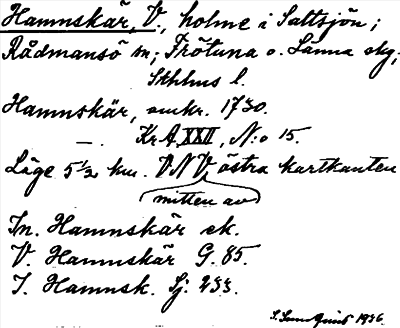 Hamnskär, V., holme i Saltsjön;
Rådmansö sn; Frötuna o. Länna sklg;
Sthlms l.
Hamnskär, omkr. 1730.
—. Kr A XXII, N:o 15.
Läge 5 1/2 km. VNV östra kartkanten
mitten av
In. Hamnskär ek.
V. Hamnskär G. 85.
I. Hamnsk. Sj. 233.
1936